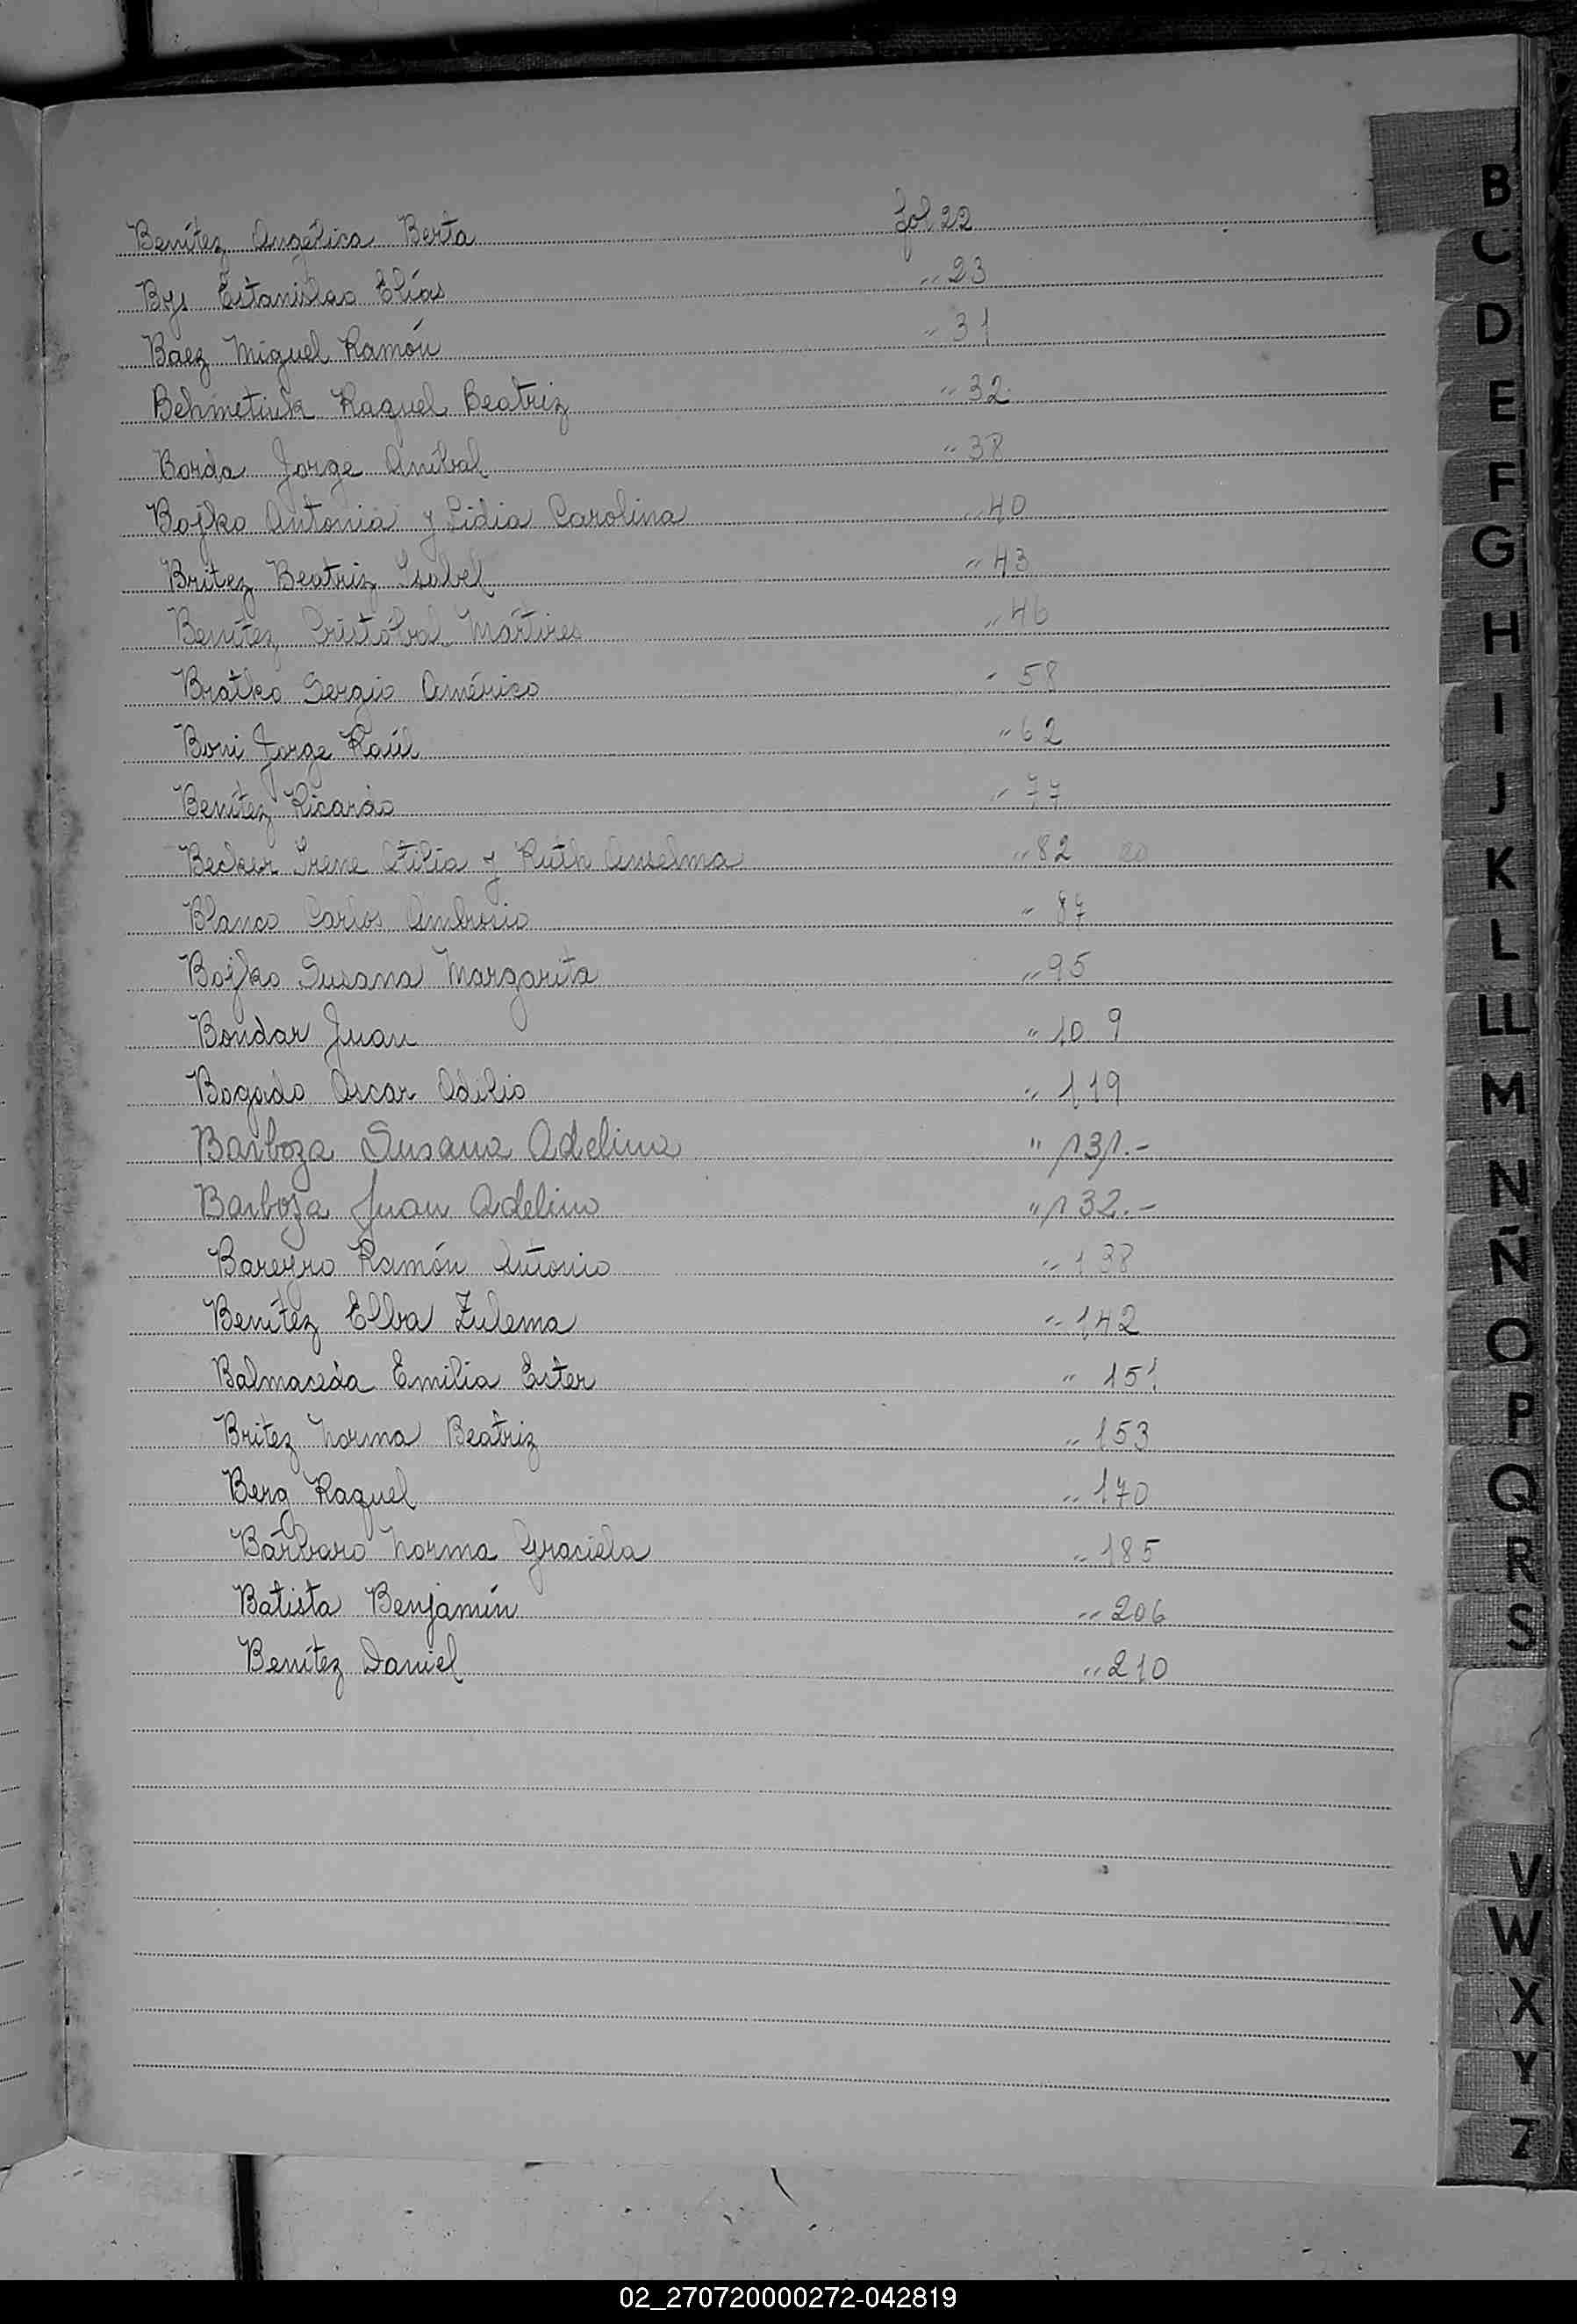 Benítez Angélica Berta fol 22
Bys Estanislao Elías " 23
Baez Miguel Ramón " 31
Behmetiuk Raquel Beatriz " 32
Borda Jorge Aníbal " 38
Bojko Antonia y Lidia Carolina " 40
Britez Beatriz Isabel " 43
Benítez Cristóbal Mártires " 46
Bratko Sergio Américo " 58
Boni Jorge Raúl " 62
Benítez Ricardo " 77
Becker Irene Otilia y Ruth Anselma " 82
Blanco Carlos Ambrosio " 87
Bojko Susana Margarita " 95
Bondar Juan " 109
Bogado Oscar Odilio " 119
Barboza Susana Adelina " 131.-
Barboza Juan Adelino " 132.-
Bareyro Ramón Antonio " 138
Benítez Elba Zulema " 142
Balmaceda Emilia Ester " 151
Britez Norma Beatriz " 153
Berg Raquel " 170
Bárbaro Norma Graciela " 185
Batista Benjamín " 206
Benítez Daniel " 210
B
C
D
E
F
G
H
I
J
K
L
LL
M
N
Ñ
O
P
Q
R
S
V
W
X
Y
Z
02_270720000272-042819